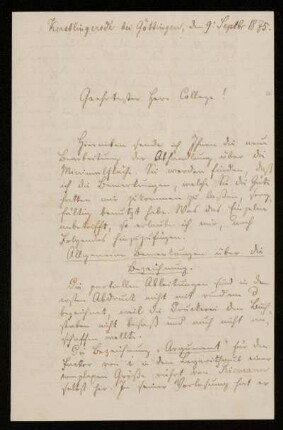 Kerstlingerode bei Göttingen, den 9. Septbr 1875.
Geehrtester Herr College!
Hierneben sende ich Ihnen die neue
Bearbeitung der Abhandlung über die
Minimalfläche. Sie werden finden, daß
ich die Bemerkungen, welche Sie die Güte
hatten mir zukommen zu lassen, sorg-
fältig benutzt habe. Was das Einzelne
anbetrifft, so erlaube ich mir, noch
Folgendes hinzuzufügen.
Allgemeine Bemerkungen über die
Bezeichnung.
Die partiellen Ableitungen sind in dem
ersten Abdruck nicht mit rundem ∂
bezeichnet, weil die Druckerei den Buch-
staben nicht besaß und auch nicht an-
schaffen wollte.
Die Bezeichnung „Argument" für den
Factor von i in dem Logarithmus einer
complexen Größe rührt von Riemann
selbst her. In seiner Vorlesung hat er